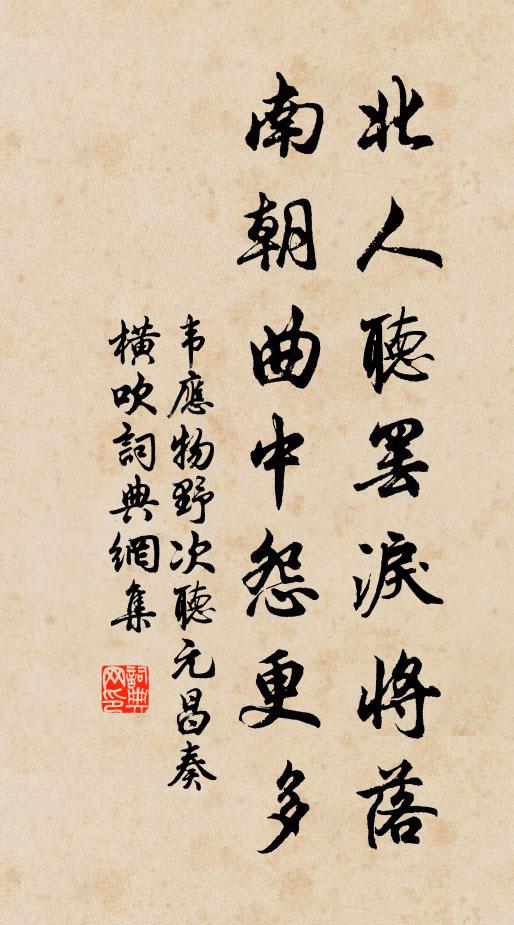 北人聽罷淚將落
南朝曲中怨更多
韦應物野次聽元昌奏
橫吹詞典網集
詞典
网印